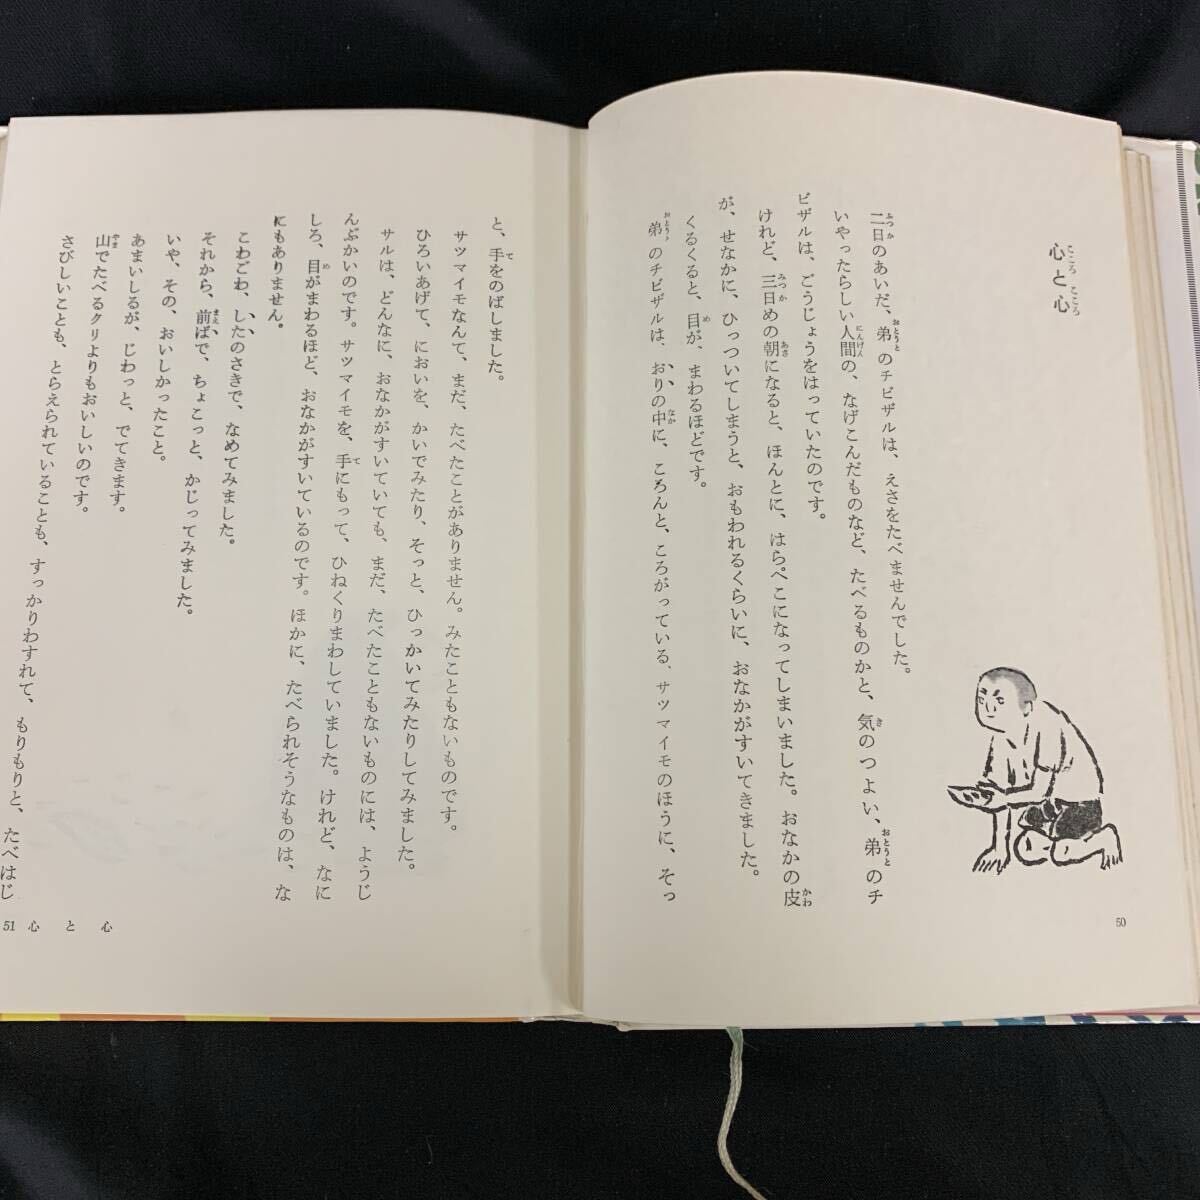 心と心
二日のあいだ、弟のチビザルは、えさをたべませんでした。
いやったらしい人間の、なげこんだものなど、たべるものかと、気のつよい、弟のチ
ビザルは、ごうじょうをはっていたのです。
けれど、三日めの朝になると、ほんとに、はらぺこになってしまいました。おなかの皮
が、せなかに、ひっついてしまうと、おもわれるくらいに、おなかがすいてきました。
くるくると、目が、まわるほどです。
弟のチビザルは、おりの中に、ころんと、ころがっている、サツマイモのほうに、そっ
50
と、手をのばしました。
サツマイモなんて、まだ、たべたことがありません。みたこともないものです。
ひろいあげて、においを、かいでみたり、そっと、ひっかいてみたりしてみました。
サルは、どんなに、おなかがすいていても、まだ、たべたこともないものには、ようじ
んぶかいのです。サツマイモを、手にもって、ひねくりまわしていました。けれど、なに
しろ、目がまわるほど、おなかがすいているのです。ほかに、たべられそうなものは、な
にもありません。
こわごわ、したのさきで、なめてみました。
それから、前ばで、ちょこっと、かじってみました。
いや、その、おいしかったこと。
あまいしるが、じわっと、でてきます。
山でたべるクリよりもおいしいのです。
さびしいことも、とらえられていることも、すっかりわすれて、もりもりと、たべはじ
51 心と心